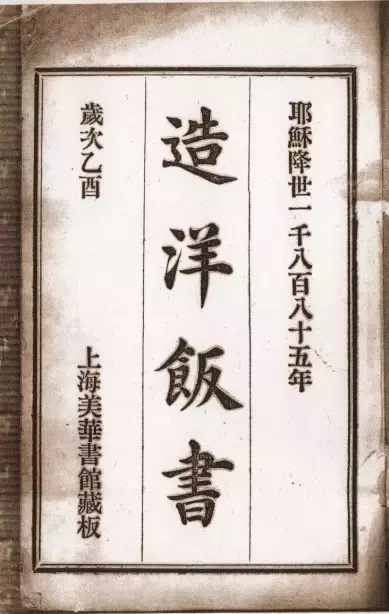 耶穌降世一千八百八十五年
造洋飯書
歲次乙酉
上海美華書館藏板